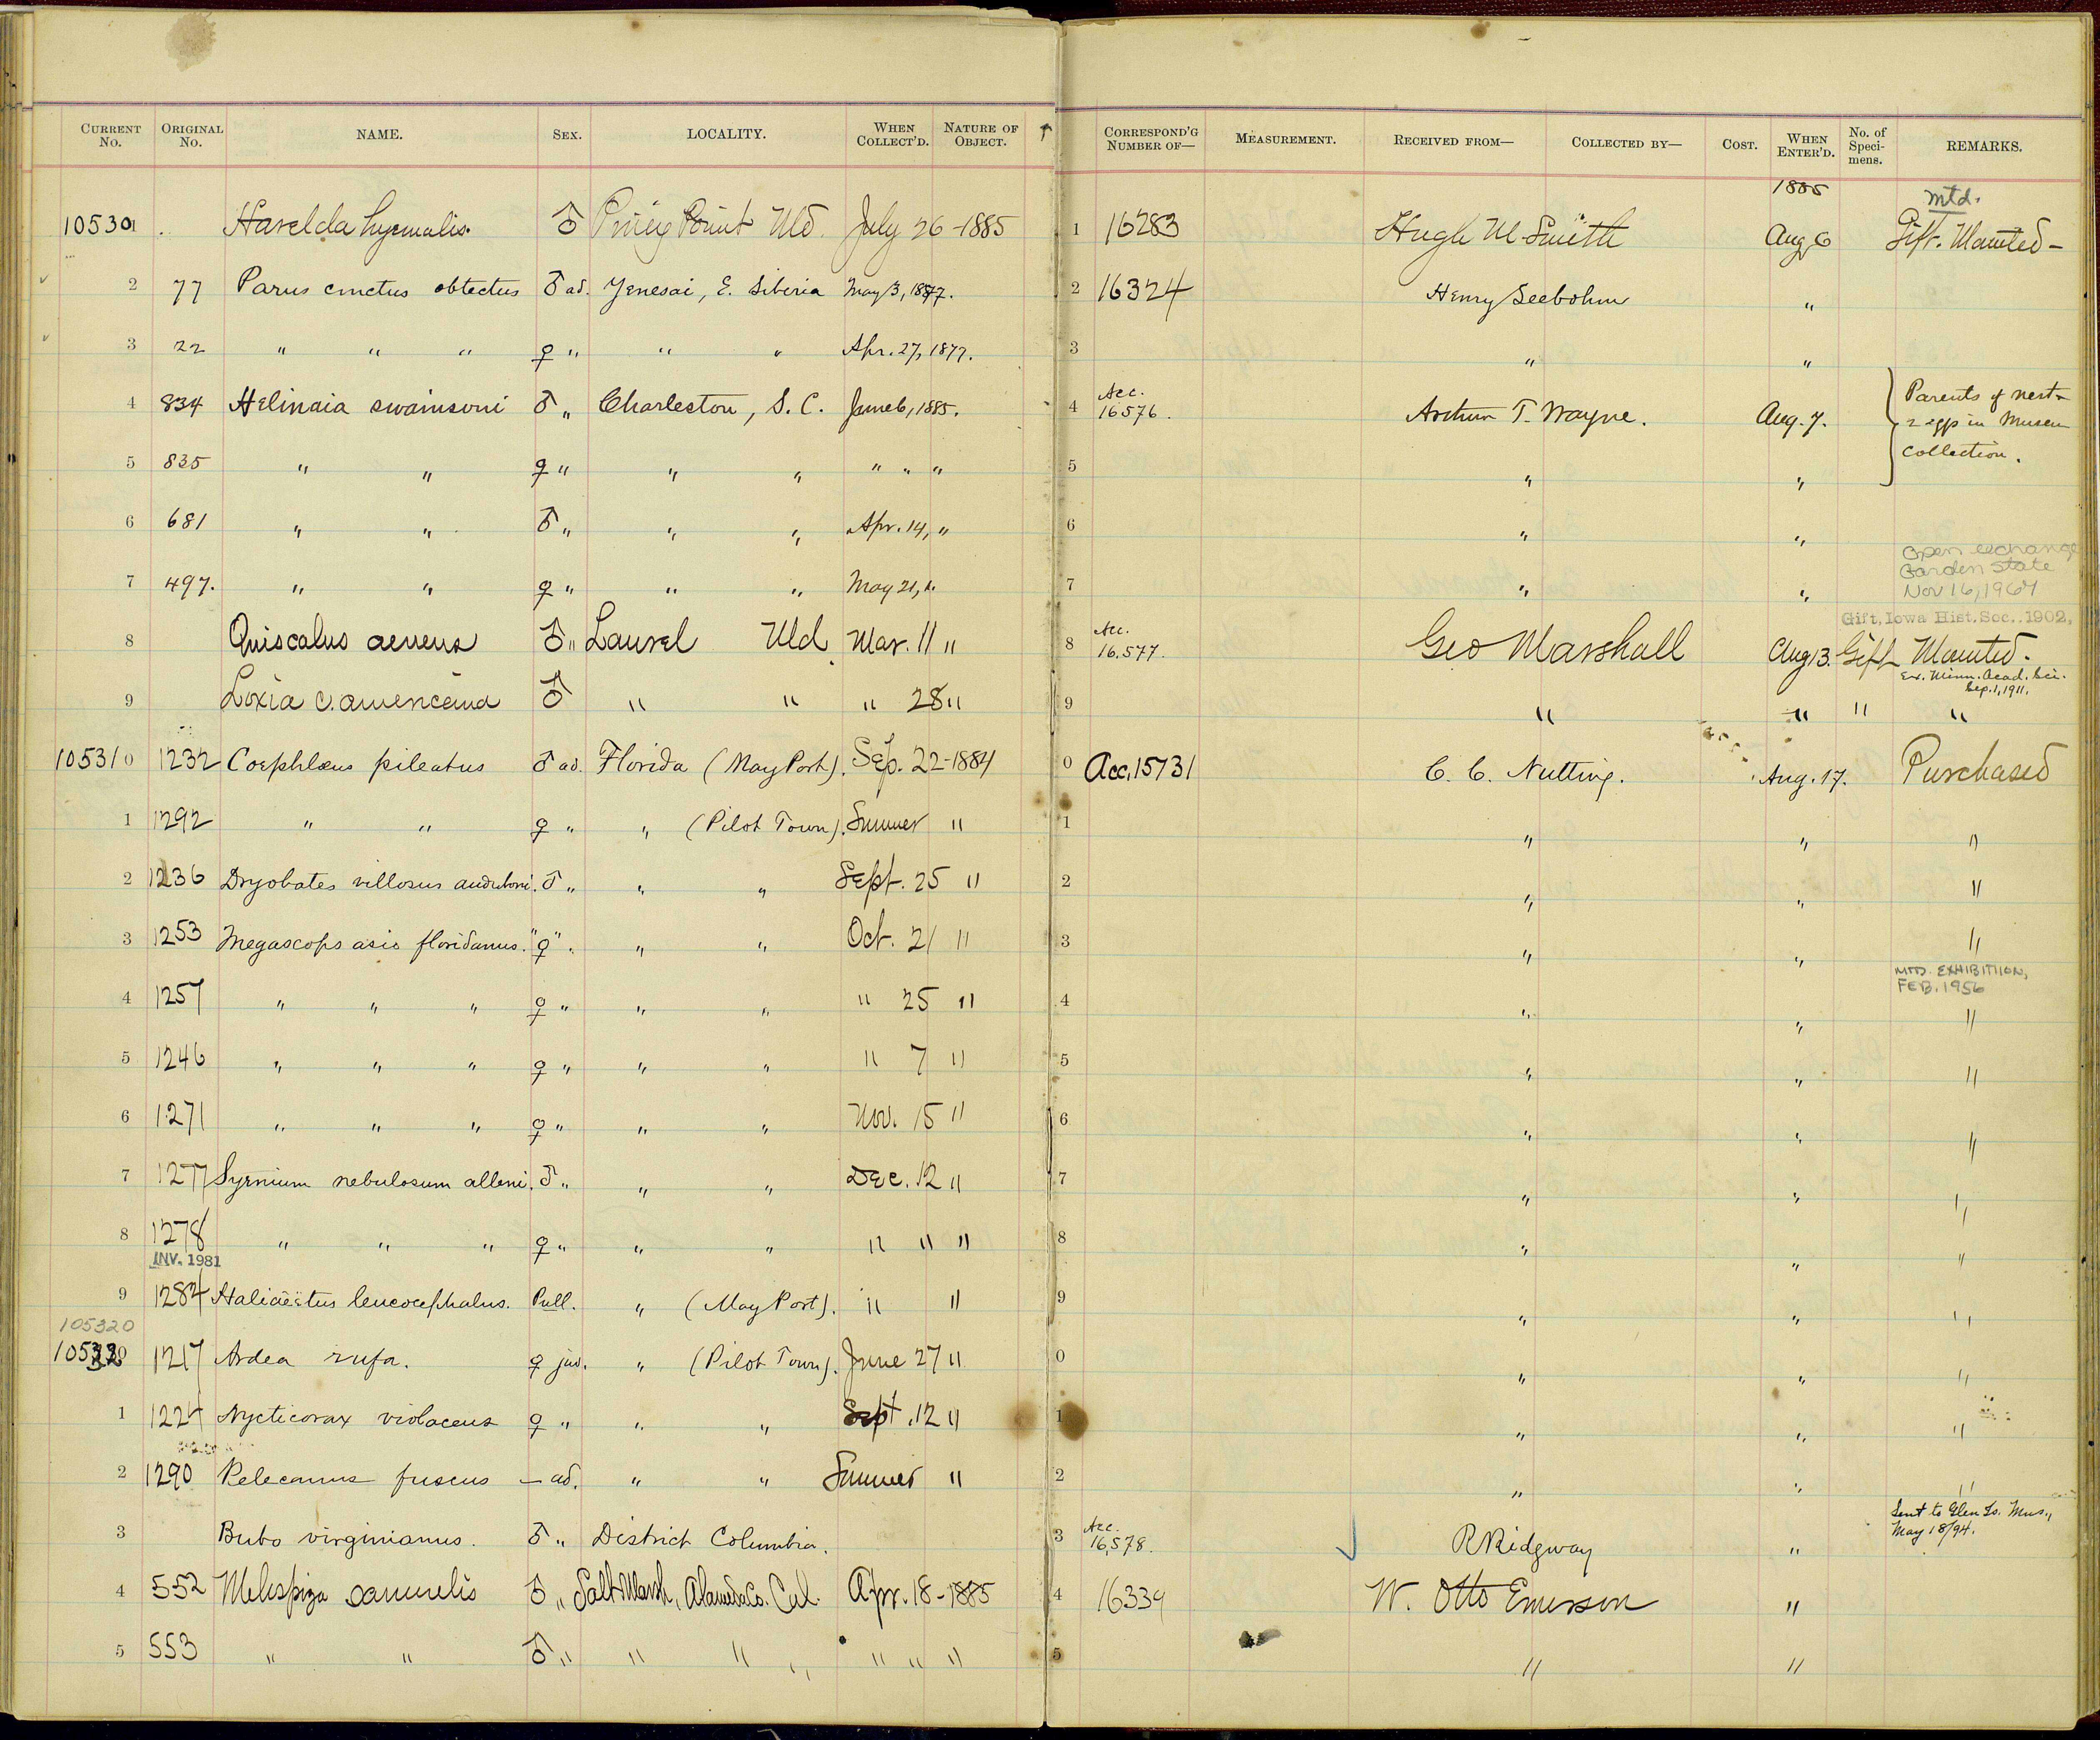 CURRENT No. ORIGINAL No. NAME. SEX. LOCALITY. WHEN COLLECT'D. NATURE OF OBJECT. CORRESPOND'G NUMBER OF— MEASUREMENT. RECEIVED FROM— COLLECTED BY— COST. WHEN ENTER'D. No. of Speci- mens. REMARKS.
1885 mtd.
105301 Harelda hyemalis. ♂ Piney Point Md. July 26-1885 1 16283 Hugh M. Smith Aug 6 Gift. Mounted-
2 77 Parus cinctus obtectus ♂ ad. Yenesai, E. Siberia May 3, 1877. 2 16324 Henry Seebohm "
3 22 " " " ♀ " " " Apr. 27, 1877. 3 " "
4 834 Helinaia swainsoni ♂ " Charleston, S.C. June 6, 1885. 4 Acc. 16576. Arthur T. Wayne. Aug. 7. Parents of nest & 2 eggs in Museum Collection.
5 835 " " ♀ " " " " " " 5 " "
6 681 " " ♂ " " " Apr. 14, " 6 " "
Open exchange Garden State Nov 16, 1967
7 497. " " ♀ " " " May 21, ". 7 " "
Gift, Iowa Hist. Soc., 1902,
8 Quiscalus aeneus ♂ " Laurel Md Mar. 11 " 8 Acc. 16,577. Geo Marshall Aug 13. Gift Mounted.
Ex. Minn. Acad. Sci. Sep. 1, 1911.
9 Loxia c. americana ♂ " " " 28 " 9 " " " "
105310 1232 Coephlœus pileatus ♂ ad. Florida (May Port). Sep. 22-1884 0 Acc. 15731 C. C. Nutting. Aug. 17. Purchased
1 1292 " " ♀ " " (Pilot Town). Summer " 1 " " "
2 1236 Dryobates villosus auduboni. ♂ " " " Sept. 25 " 2 " " "
3 1253 Megascops asio floridanus. "♀". " " Oct. 21 " 3 " " "
MTD. EXHIBITIION, FEB. 1956
4 1257 " " " ♀ " " " " 25 " 4 " " "
5 1246 " " " ♀ " " " " 7 " 5 " " "
6 1271 " " " ♀ " " " Nov. 15 " 6 " " "
7 1277 Syrnium nebulosum alleni. ♂ " " " Dec. 12 " 7 " " "
8 1278 " " " ♀ " " " " " " 8 " " "
INV. 1981
9 1284 Haliaëetus leucocephalus. Pull. " (May Port). " " 9 " " "
105320
105320 1217 Ardea rufa. ♀ juv. " (Pilot Town). June 27 " 0 " " "
1 1224 Nycticorax violaceus ♀ " " " Sept. 12 " 1 " " "
2 1290 Pelecanus fuscus — ad. " " Summer " 2 " " "
Sent to Glen Is. Mus., May 18/94.
3 Bubo virginianus. ♂ " District Columbia. 3 Acc. 16,578. R Ridgway "
4 552 Melospiza samuelis ♂ " Salt Marsh, Alameda Co. Cal. Apr. 18-1885 4 16339 W. Otto Emerson "
5 553 " " ♂ " " " " " " " 5 " "